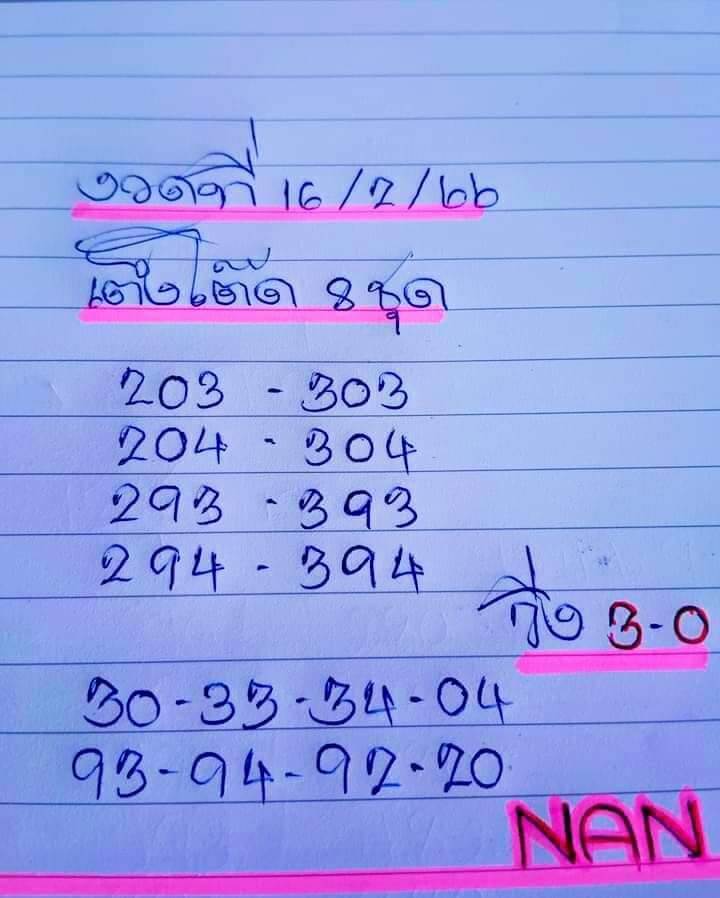 งวดที่ 16/7/66
เต็งโต๊ด 8 ชุด
203 - 303
204 - 304
293 - 393
294 - 394
วิ่ง 3-0
30-33-34-04
93-94-92-20
NAN